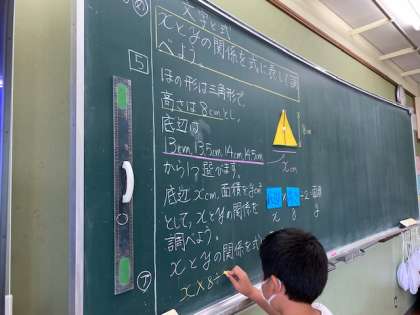 め
文字と式
xとyの関係を式に表して調
べよう。
5
ほの形は三角形で、
高さは8cmとし、
底辺は
13cm,13.5cm,14cm,14.5cm
から1つ選びます。
底辺xcm、面積をycm²
として、xとyの関係を
調べよう。
ア
xとyの関係を式
x×8÷
8cm
xcm
÷2=面積
x 8 y